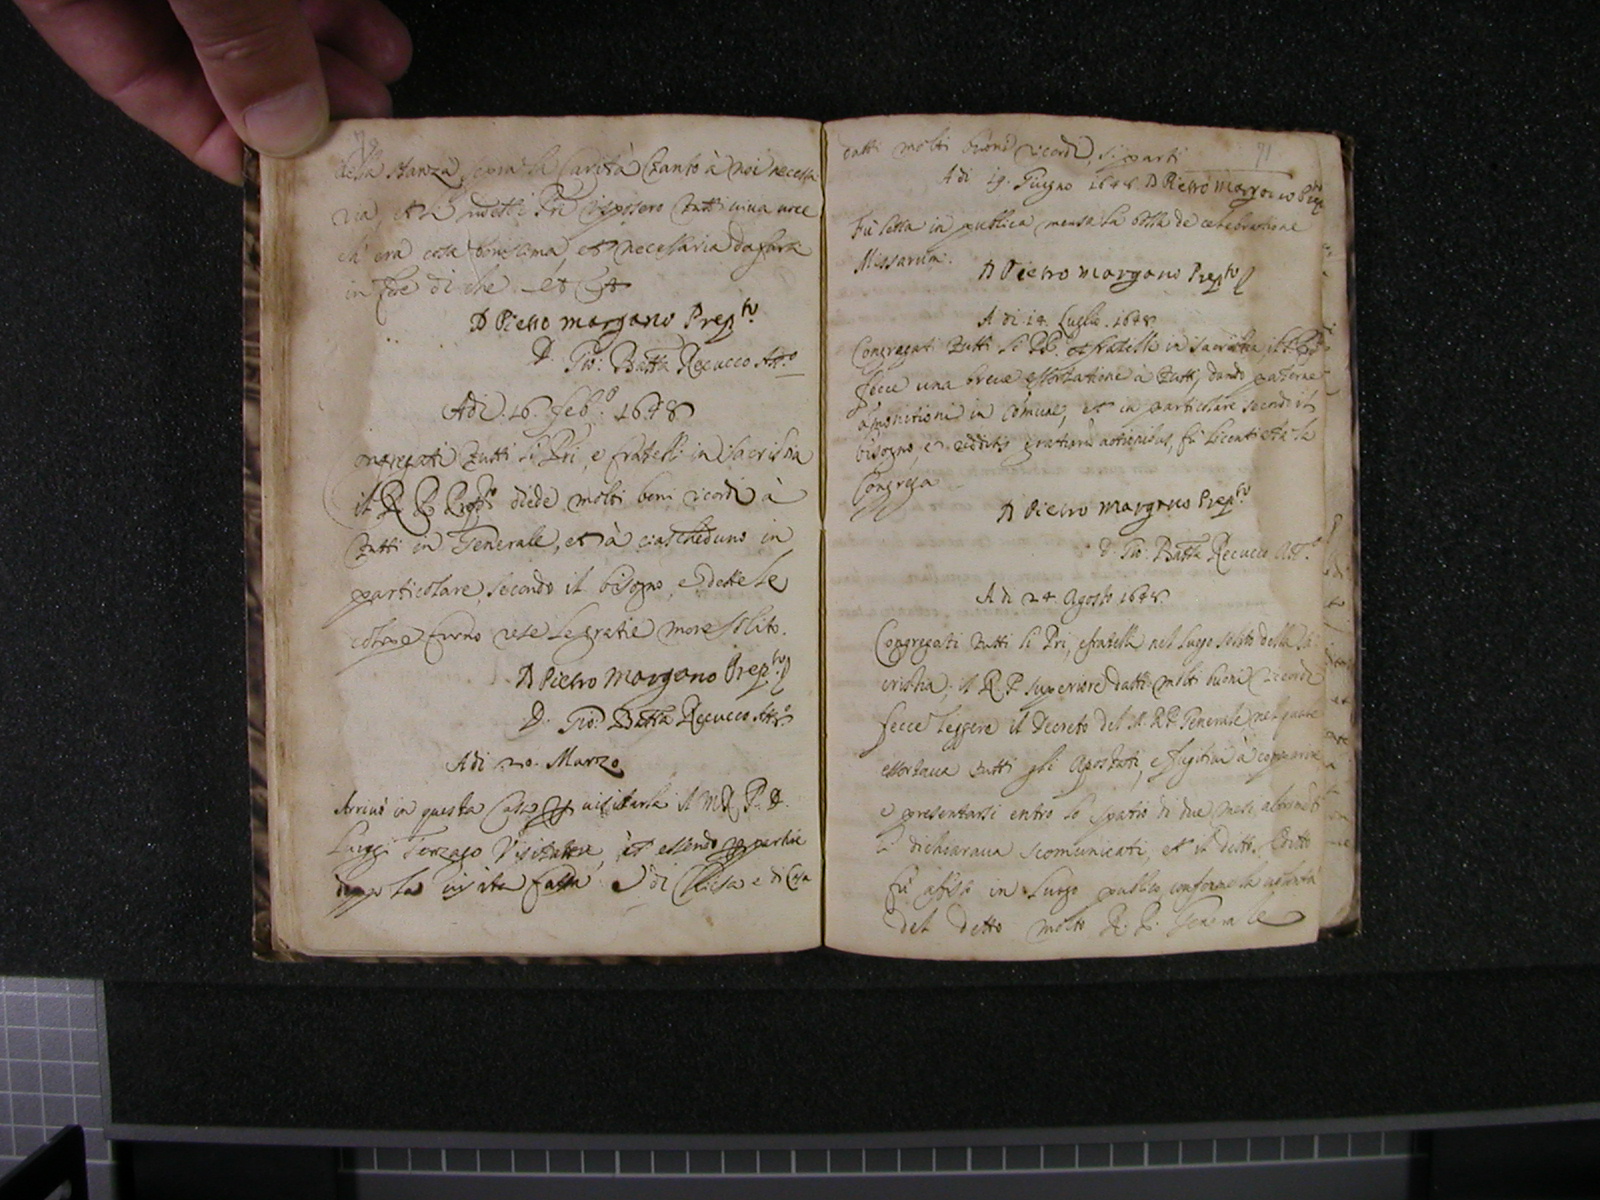 della stanza sopra la Carità tanto à noi necessa
ria, et li Pri risposero tutti viva voce
ch'era cosa bonissima, et necessaria da farsi
in fede di che et
D Pietro Margano Prepto
D. Gio: Batta Recucco Atto
Adi 16. Febo. 1648
ongregati tutti li Pri, e fratelli in sacristia
il R. P. Prepto diede molti boni ricordi à
tutti in Generale, et à ciascheduno in
particolare secondo il bisogno, e dette le
colpe furno rese le gratie more solito.
D Pietro Margano Prepto
D. Gio: Batta Recucco Atto
Adi 20. Marzo
Arrivò in questa Casa visitarla il M R. P. D.
Luigi Terzago Visitatore, et essendo
doppo la visita fatta di Chiesa e di Casa
71
datti molti buoni ricordi, si partì
Adi 19. Giugno 1648 D Pietro Margano Prep
Fù letta in publica mensa la Bolla de celebratione
Missarum.
D Pietro Margano Prepto
Adi 14. Luglio. 1648
Congregati tutti li PP. et fratelli in sacristia il
fece una breve essortatione à tutti, dando paterne
amonitioni in comune, et in particolare secondo il
bisogno, e redditis gratiarum actionibus, fù licentiata la
Congrega
D Pietro Margano Prepto
D. Gio: Batta Recucco Atto
Adi 24. Agosto 1648.
Congregati tutti li Pri, e fratelli nel luogo solito della Sa
cristia, il R. P. Superiore datti molti buoni ricordi
fecce leggere il Decreto del M. R. P. Generale, nel quale
essortava tutti gli Apostati, e fugitivi à comparire
e presentarsi entro lo spatio di due mesi, altrimenti
li dichiarava scomunicati, et il detto Editto
fù affisso in luogo publico conforme la volontà
del detto molto R. P. Generale